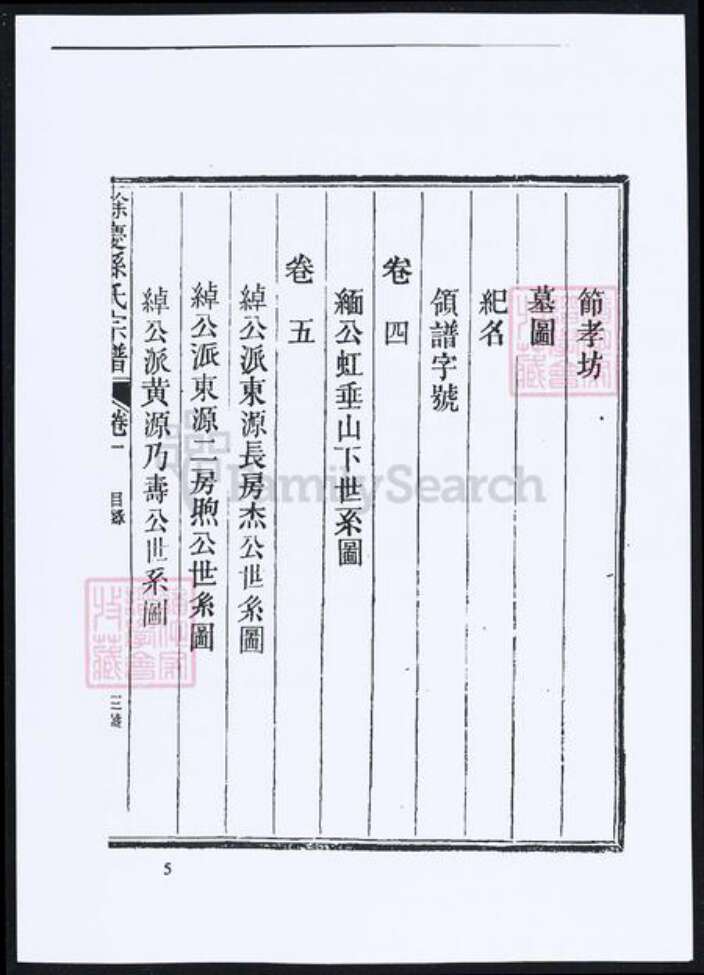 節孝坊
墓圖
紀名
領譜字號
卷四
緬公虹垂山下世系圖
卷五
綽公派東源長房杰公世系圖
綽公派東源二房煦公世系圖
綽公派黄源乃壽公世系圖
餘慶孫氏宗譜 卷一 目錄
5
FamilySearch